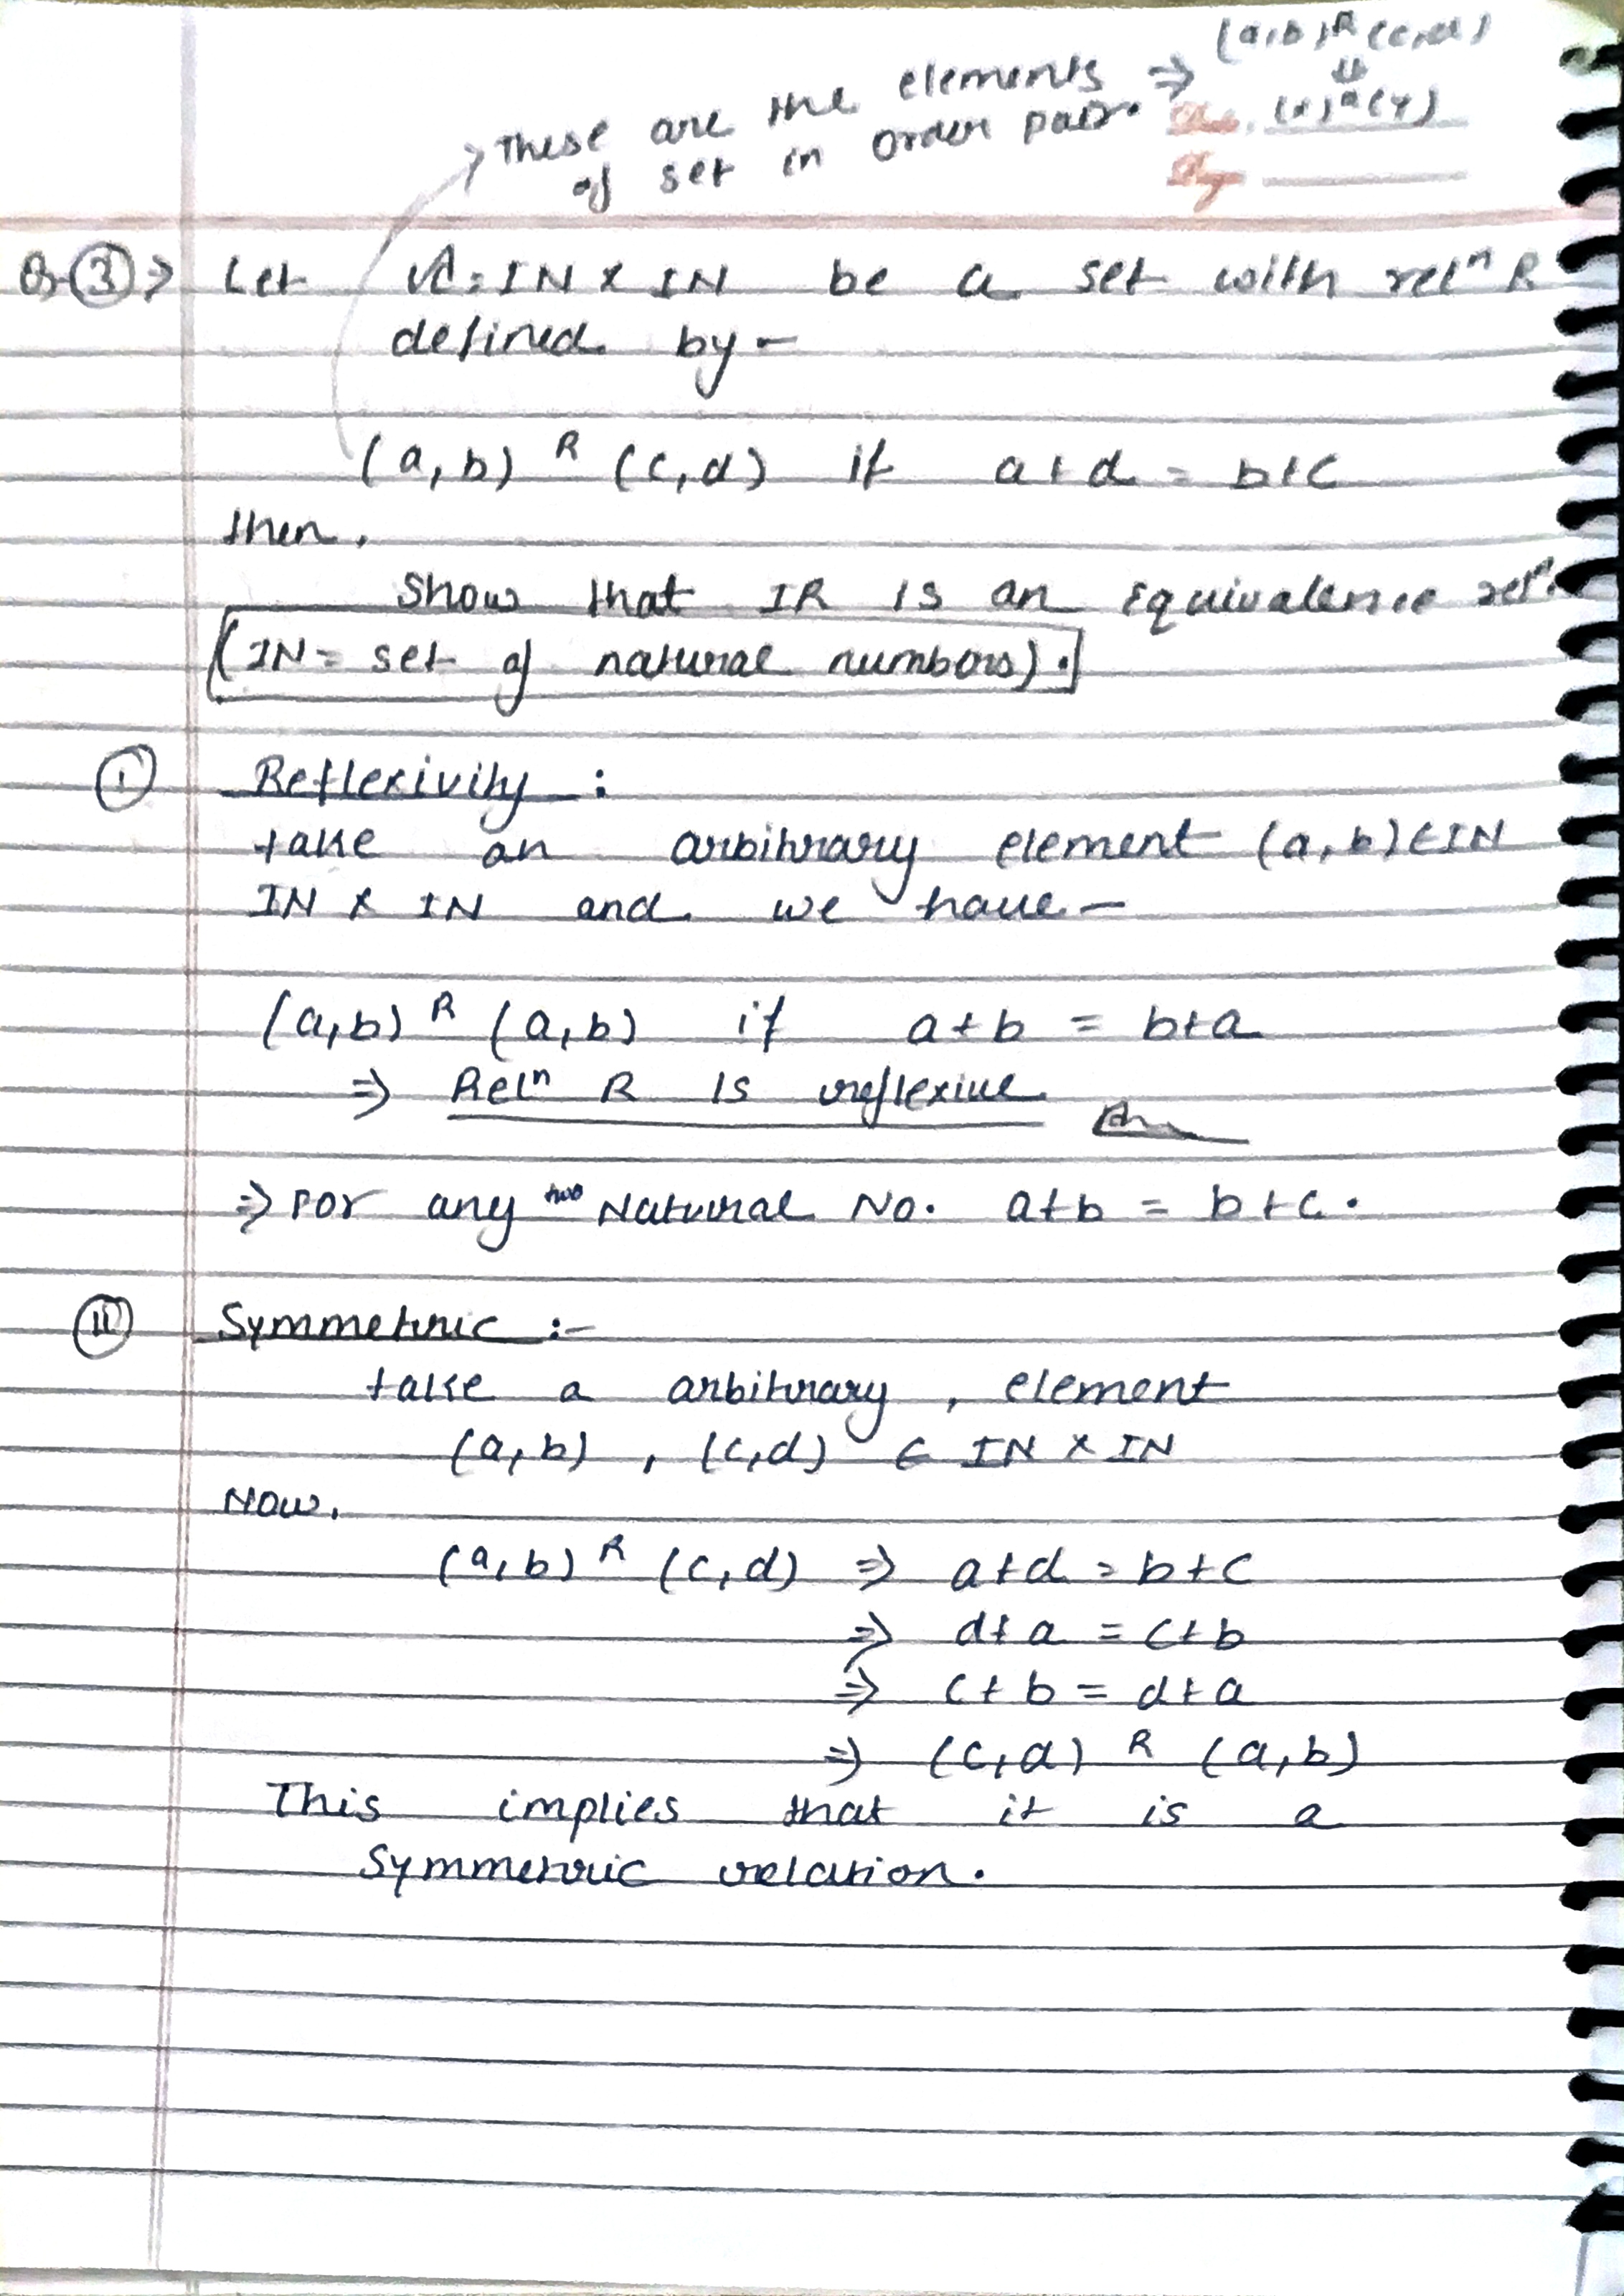 (a,b) R (c,d)
⇓
→ These are the elements ⇒ (x) R (y)
of set in order pair.
Q-③⇒ Let A = IN × IN be a set with relⁿ R
defined by -
(a, b) R (c, d) if a + d = b + c
then,
Show that IR is an equivalence relⁿ.
(IN = set of natural numbers).
① Reflexivity :
take an arbitrary element (a, b) ∈ IN
IN × IN and we have -
(a, b) R (a, b) if a + b = b + a
⇒ Relⁿ R is reflexive
⇒ For any two Natural No. a + b = b + c.
⑪ Symmetric :-
take a arbitrary, element
(a, b), (c, d) ∈ IN × IN
Now,
(a, b) R (c, d) ⇒ a + d = b + c
⇒ d + a = c + b
⇒ c + b = d + a
⇒ (c, d) R (a, b)
This implies that it is a
Symmetric relation.